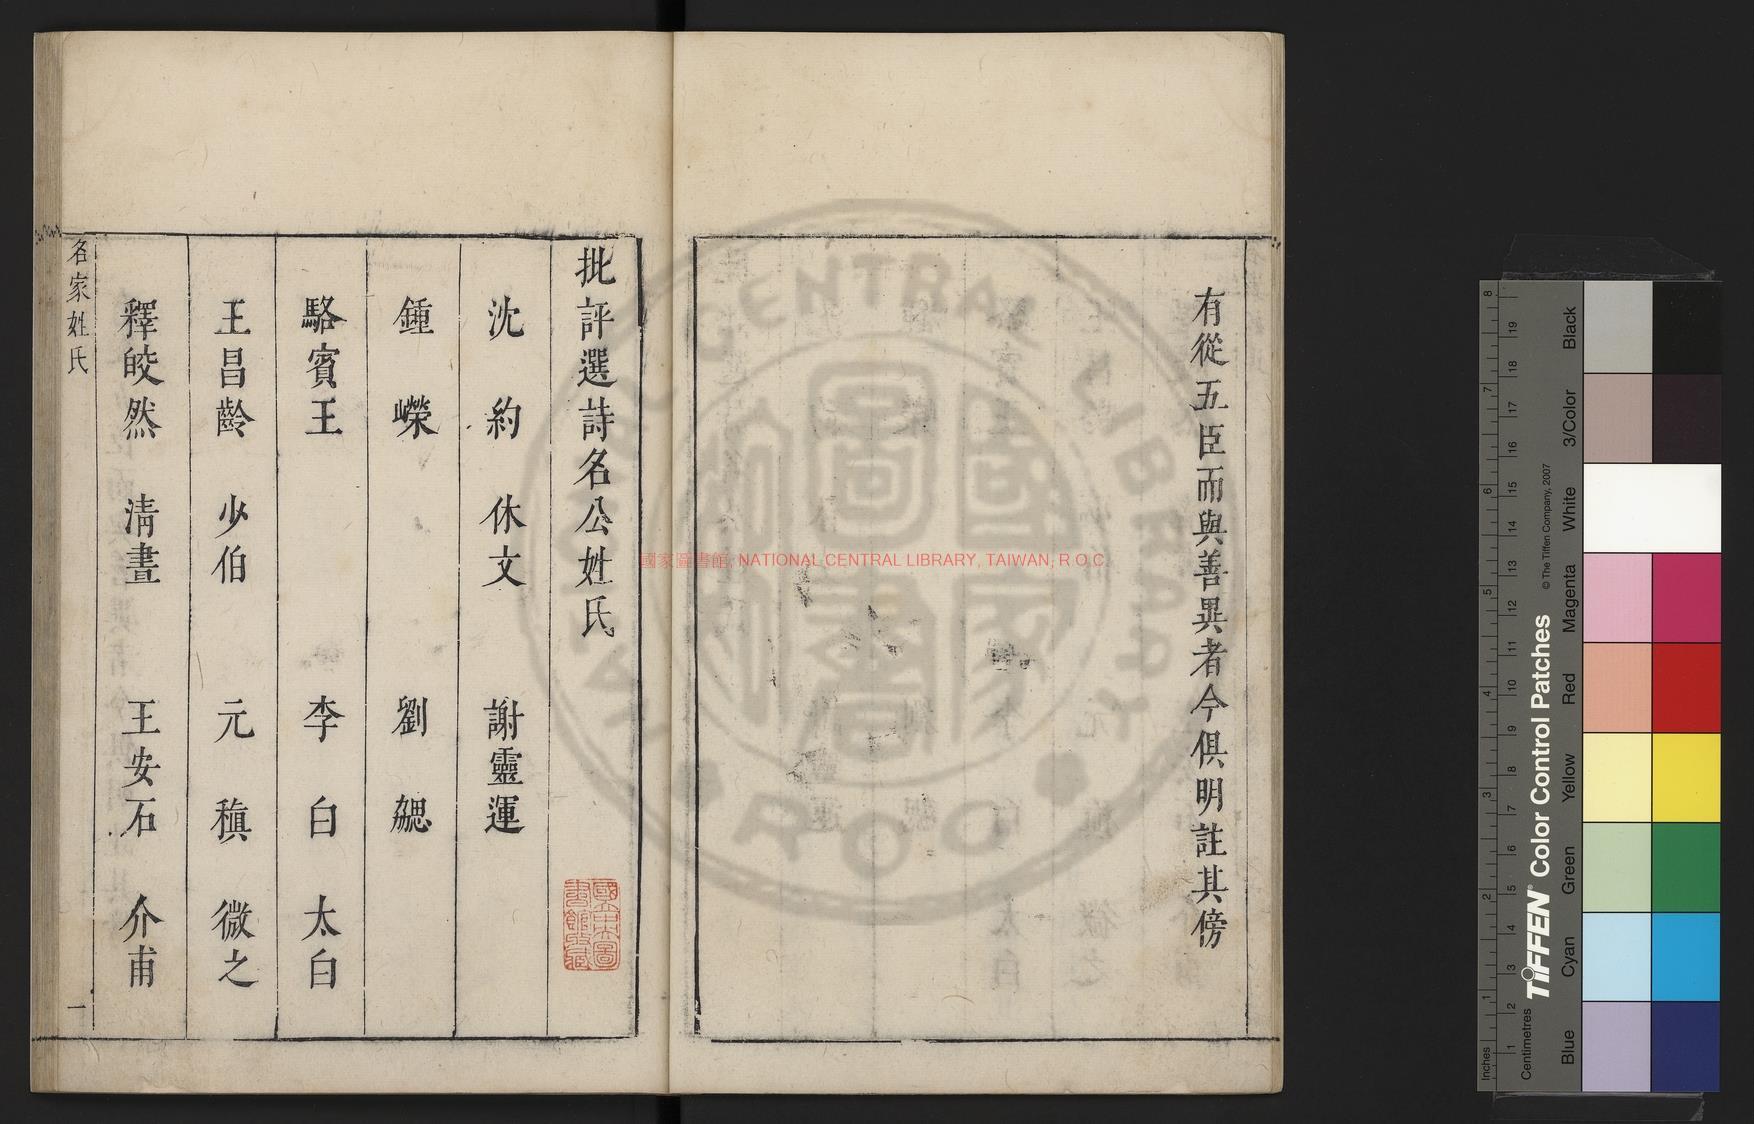 有從五臣而與善異者今俱明註其傍
批評選詩名公姓氏
沈約 休文 謝靈運
鍾嶸 劉勰
駱賓王 李白 太白
王昌齡 少伯 元稹 微之
釋皎然 清晝 王安石 介甫
名家姓氏 一
國家圖書館, NATIONAL CENTRAL LIBRARY, TAIWAN, R O C
NATIONAL CENTRAL LIBRARY
國家圖書
R O O
Inches
Centimetres
TIFFEN® Color Control Patches
© The Tiffen Company, 2007
Blue
Cyan
Green
Yellow
Red
Magenta
White
3/Color
Black